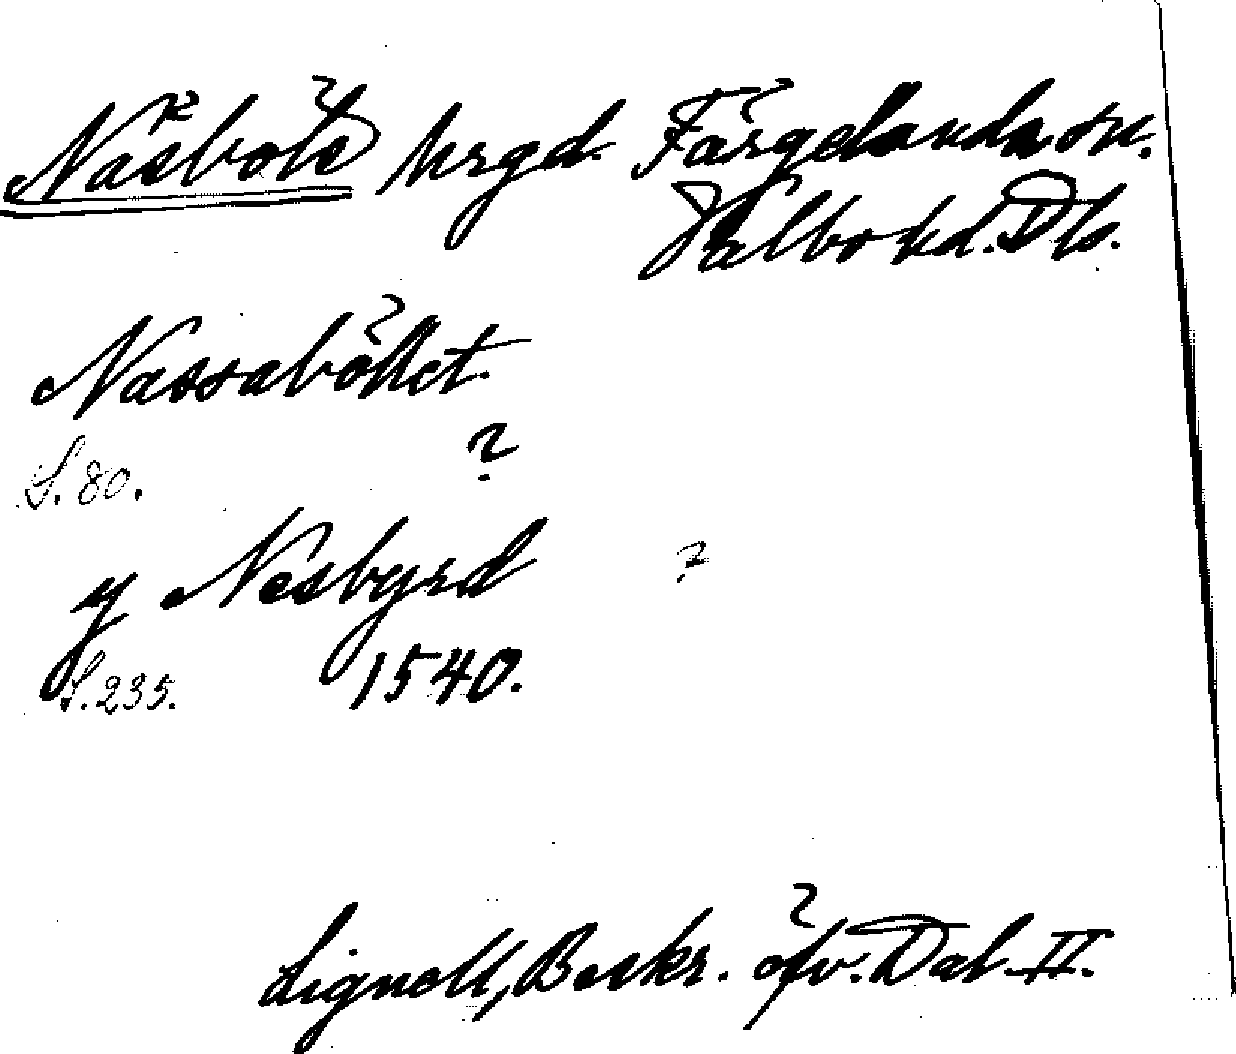 Näsböle hrgd. Färgelanda sn.
Valbo hd. Dls.
Nassaböllet.
S. 80. ?
y Nesbyrd ?
S. 235. 1540.
Lignell, Beskr. öfv. Dal II.